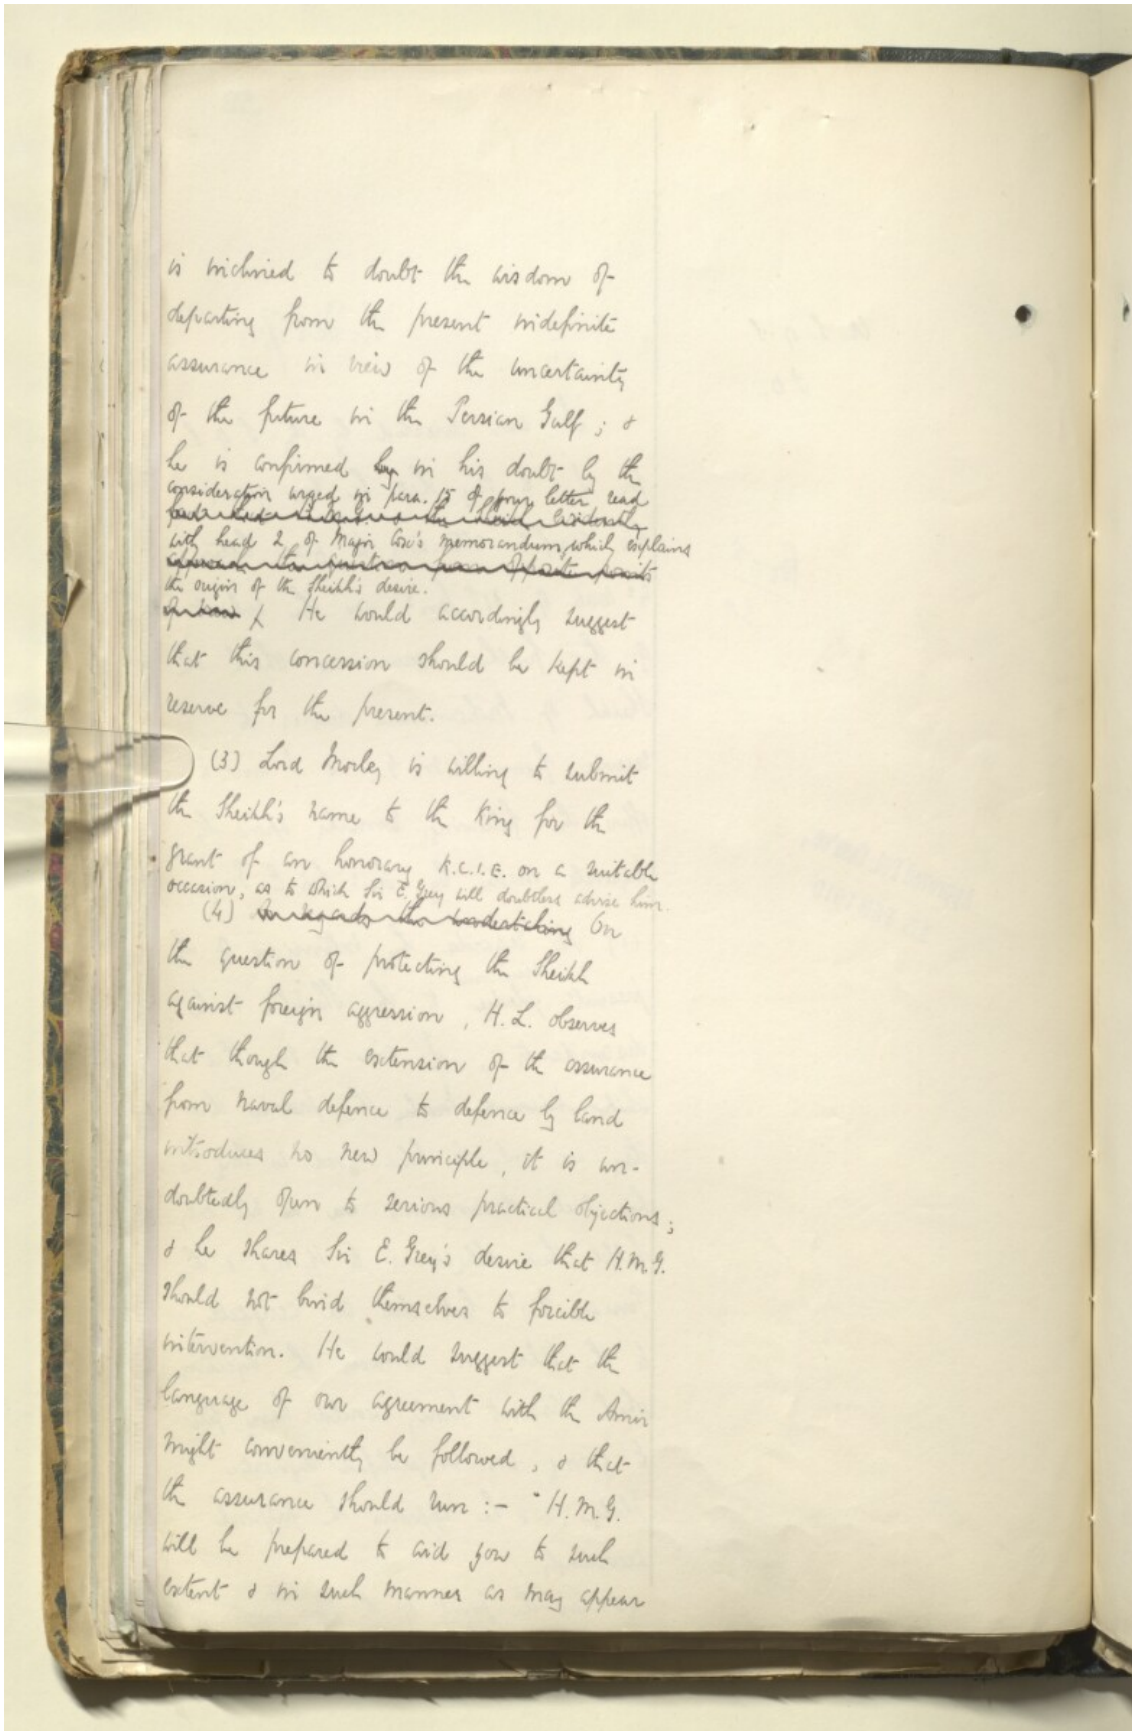 is inclined to doubt the wisdom of
departing from the present indefinite
assurance in view of the uncertainty
of the future in the Persian Gulf ; &
he is confirmed by in his doubt by the
consideration urged in para. 15 of your letter read
with head 2 of Major Cox's memorandum, which explains
the origin of the Sheikh's desire.
He would accordingly suggest
that this concession should be kept in
reserve for the present.
(3) Lord Morley is willing to submit
the Sheikh's name to the King for the
grant of an honorary K.C.I.E. on a suitable
occasion, as to which Sir E. Grey will doubtless advise him.
(4) As regards the undertaking On
the question of protecting the Sheikh
against foreign aggression, H.L. observes
that though the extension of the assurance
from naval defence to defence by land
introduces no new principle, it is un-
doubtedly open to serious practical objections ;
& he shares Sir E. Grey's desire that H.M.G.
should not bind themselves to forcible
intervention. He would suggest that the
language of our agreement with the Amir
might conveniently be followed, & that
the assurance should run :- "H.M.G.
will be prepared to aid you to such
extent & in such manner as may appear